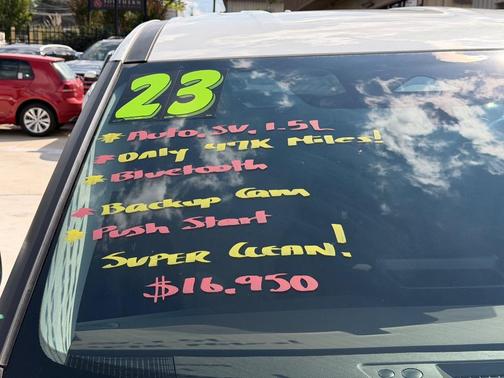 SOUTHERN
23
* Auto, SV, 1.5L
* Only 47K Miles!
* Bluetooth
* Backup Cam
* Push Start
SUPER CLEAN!
$16,950